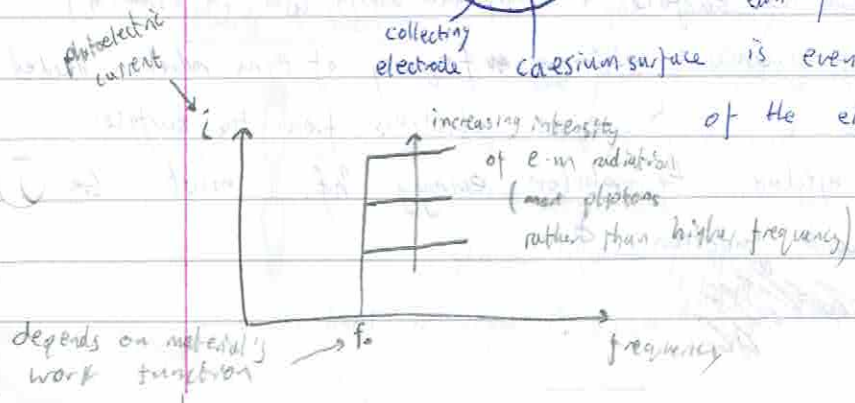 collecting
electrode
caesium surface is even
of the e
photoelectric
current
i
increasing intensity
of e-m radiation
(more photons
rather than higher frequency)
depends on material's
work function
f₀
frequency